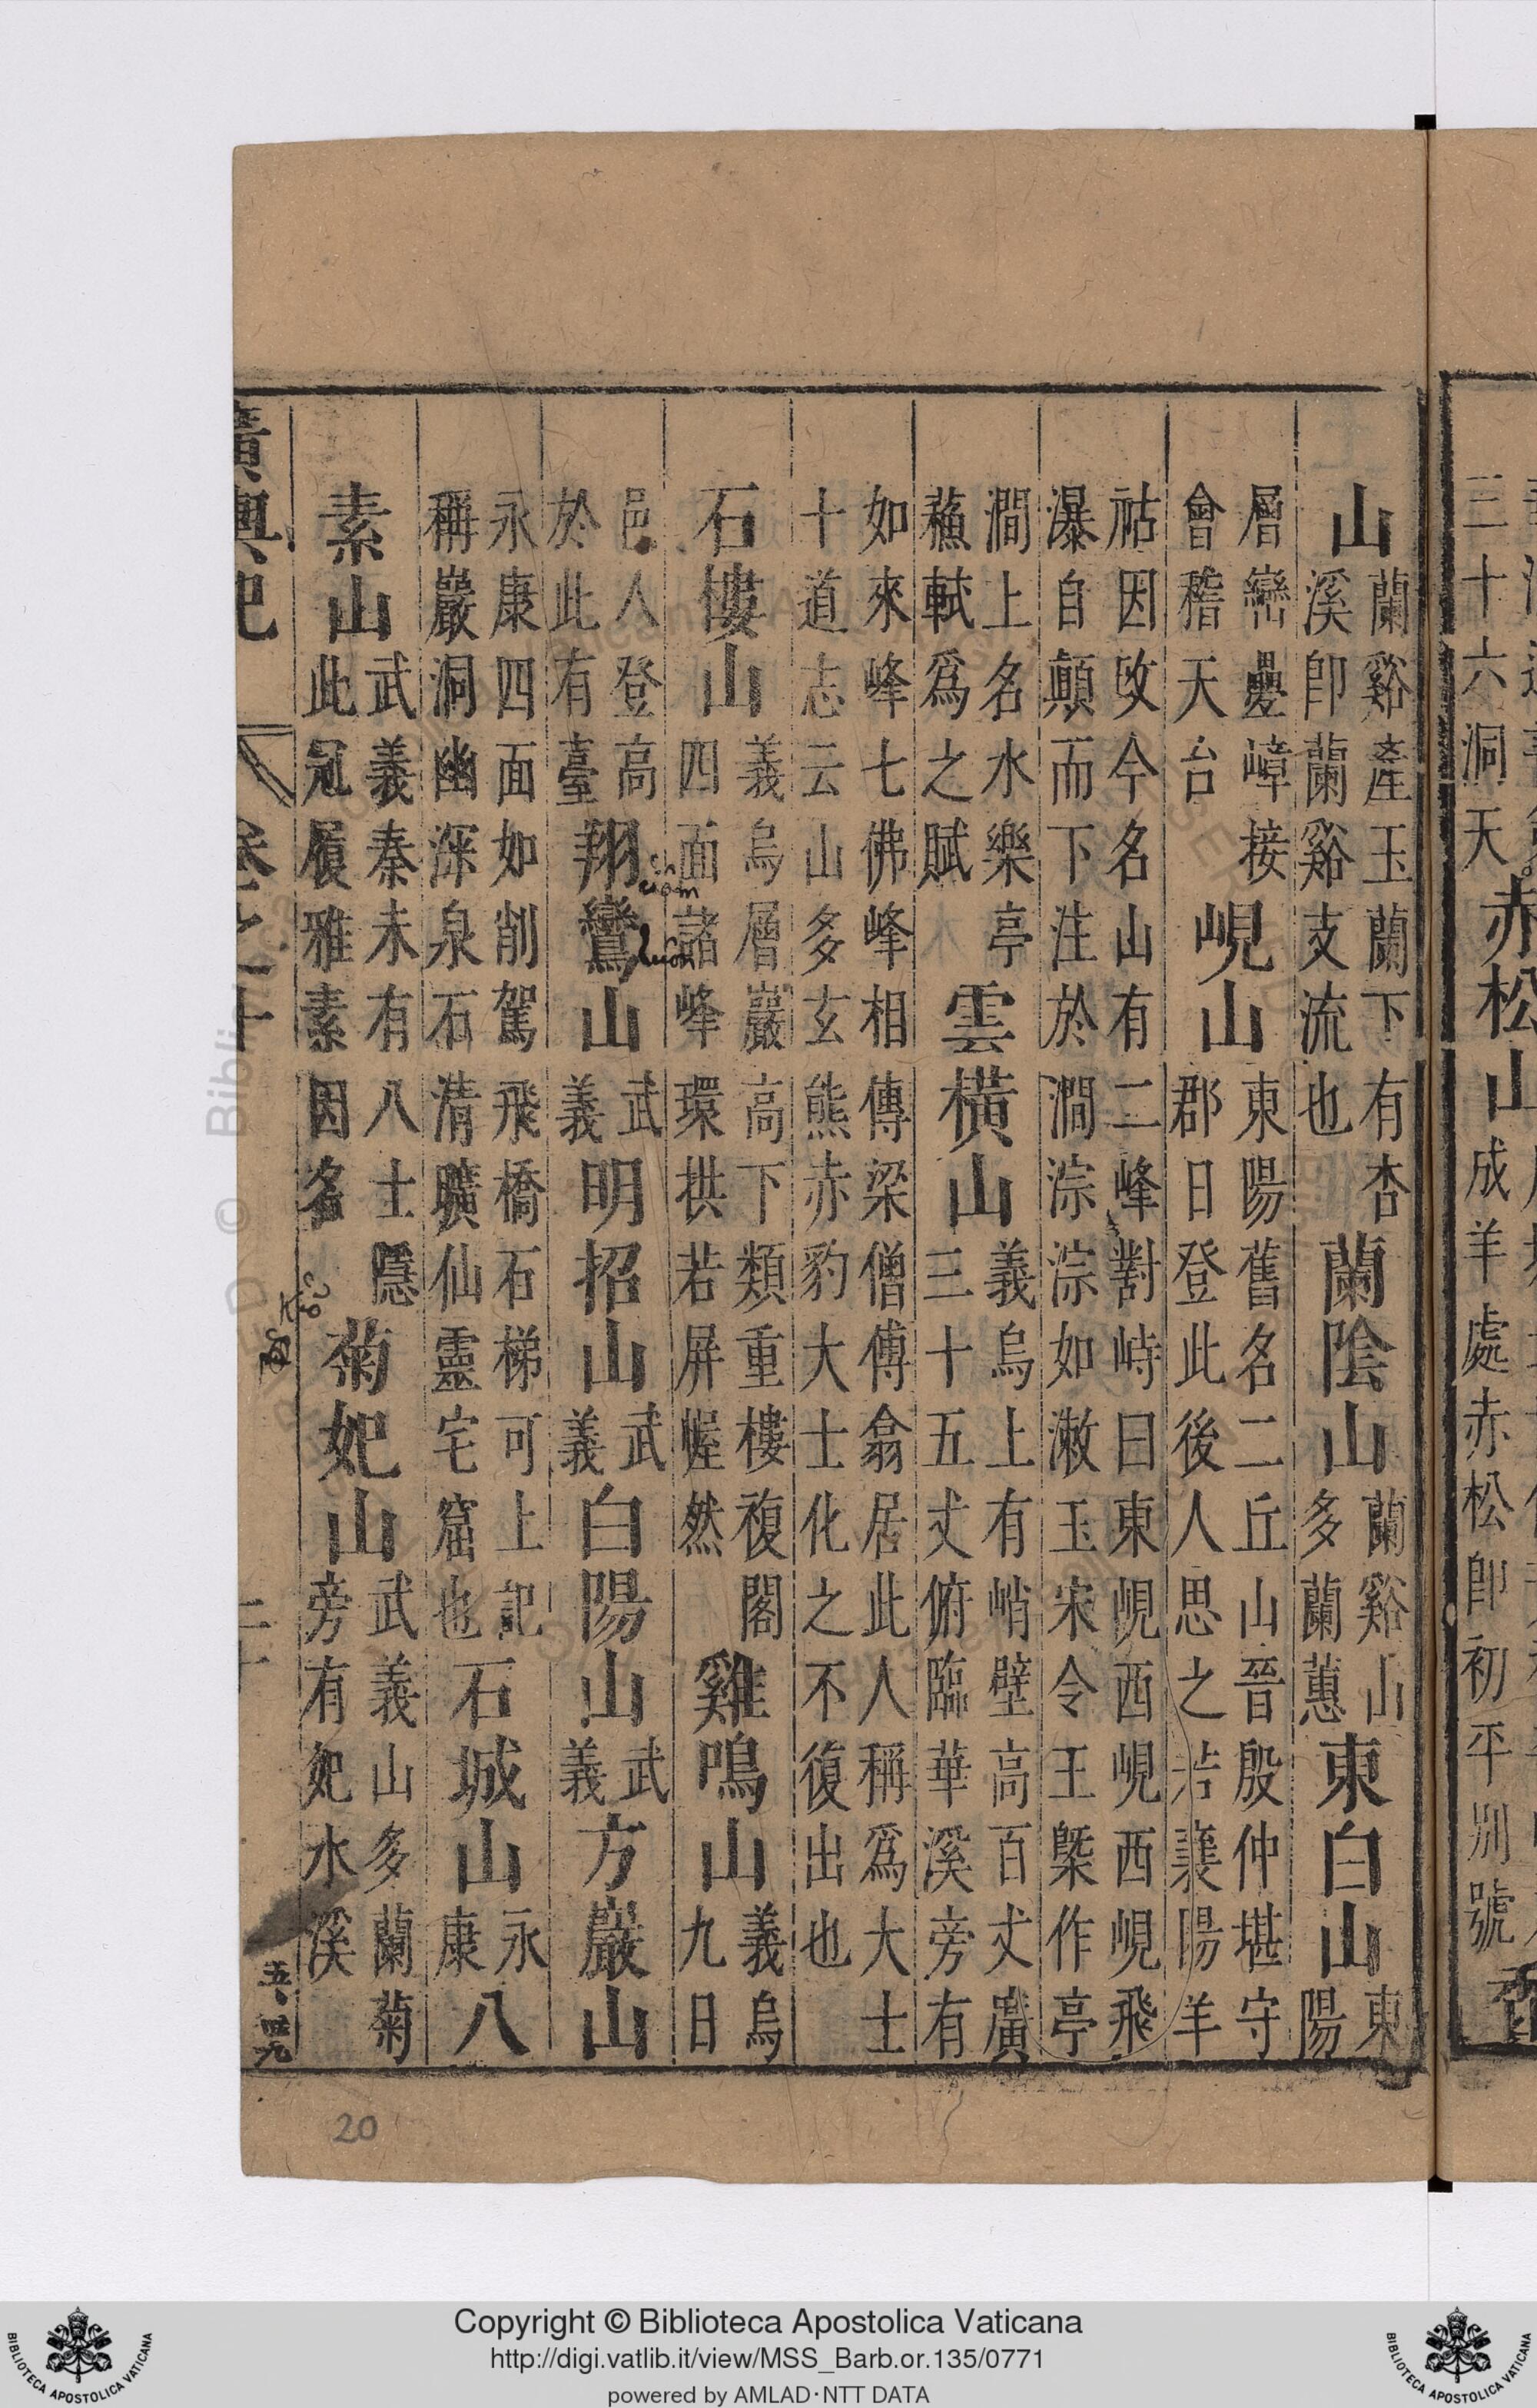 三十六洞天
赤松山
成羊處赤松即初平別號
山
蘭谿產玉蘭下有杏
溪即蘭谿支流也
蘭陰山
蘭谿山
多蘭蕙
東白山
東
陽
層巒疊嶂接
會稽天台
峴山
東陽舊名二丘山晉殷仲堪守
郡日登此後人思之若襄陽羊
祜因改今名山有二峰對峙曰東峴西峴西峴飛
瀑自顛而下注於澗淙淙如漱玉宋令王槩作亭
澗上名水樂亭
蘓軾爲之賦
雲橫山
義烏上有峭壁高百丈廣
三十五丈俯臨華溪旁有
如來峰七佛峰相傳梁僧傅翕居此人稱爲大士
十道志云山多玄熊赤豹大士化之不復出也
石樓山
義烏層巖高下類重樓複閣
四面諸峰環拱若屏幄然
雞鳴山
義烏
九日
邑人登高
於此有臺
翔鸞山
武
義
明招山
武
義
白陽山
武
義
方巖山
永康四面如削駕飛橋石梯可上記
稱巖洞幽深泉石清曠仙靈宅窟也
石城山
永
康
八
素山
武義秦末有八士隱
此冠履雅素因名
菊妃山
武義山多蘭菊
旁有妃水溪
廣輿記
20
Copyright © Biblioteca Apostolica Vaticana
http://digi.vatlib.it/view/MSS_Barb.or.135/0771
powered by AMLAD·NTT DATA
BIBLIOTECA APOSTOLICA VATICANA
BIBLIOTECA APOSTOLICA VATICANA